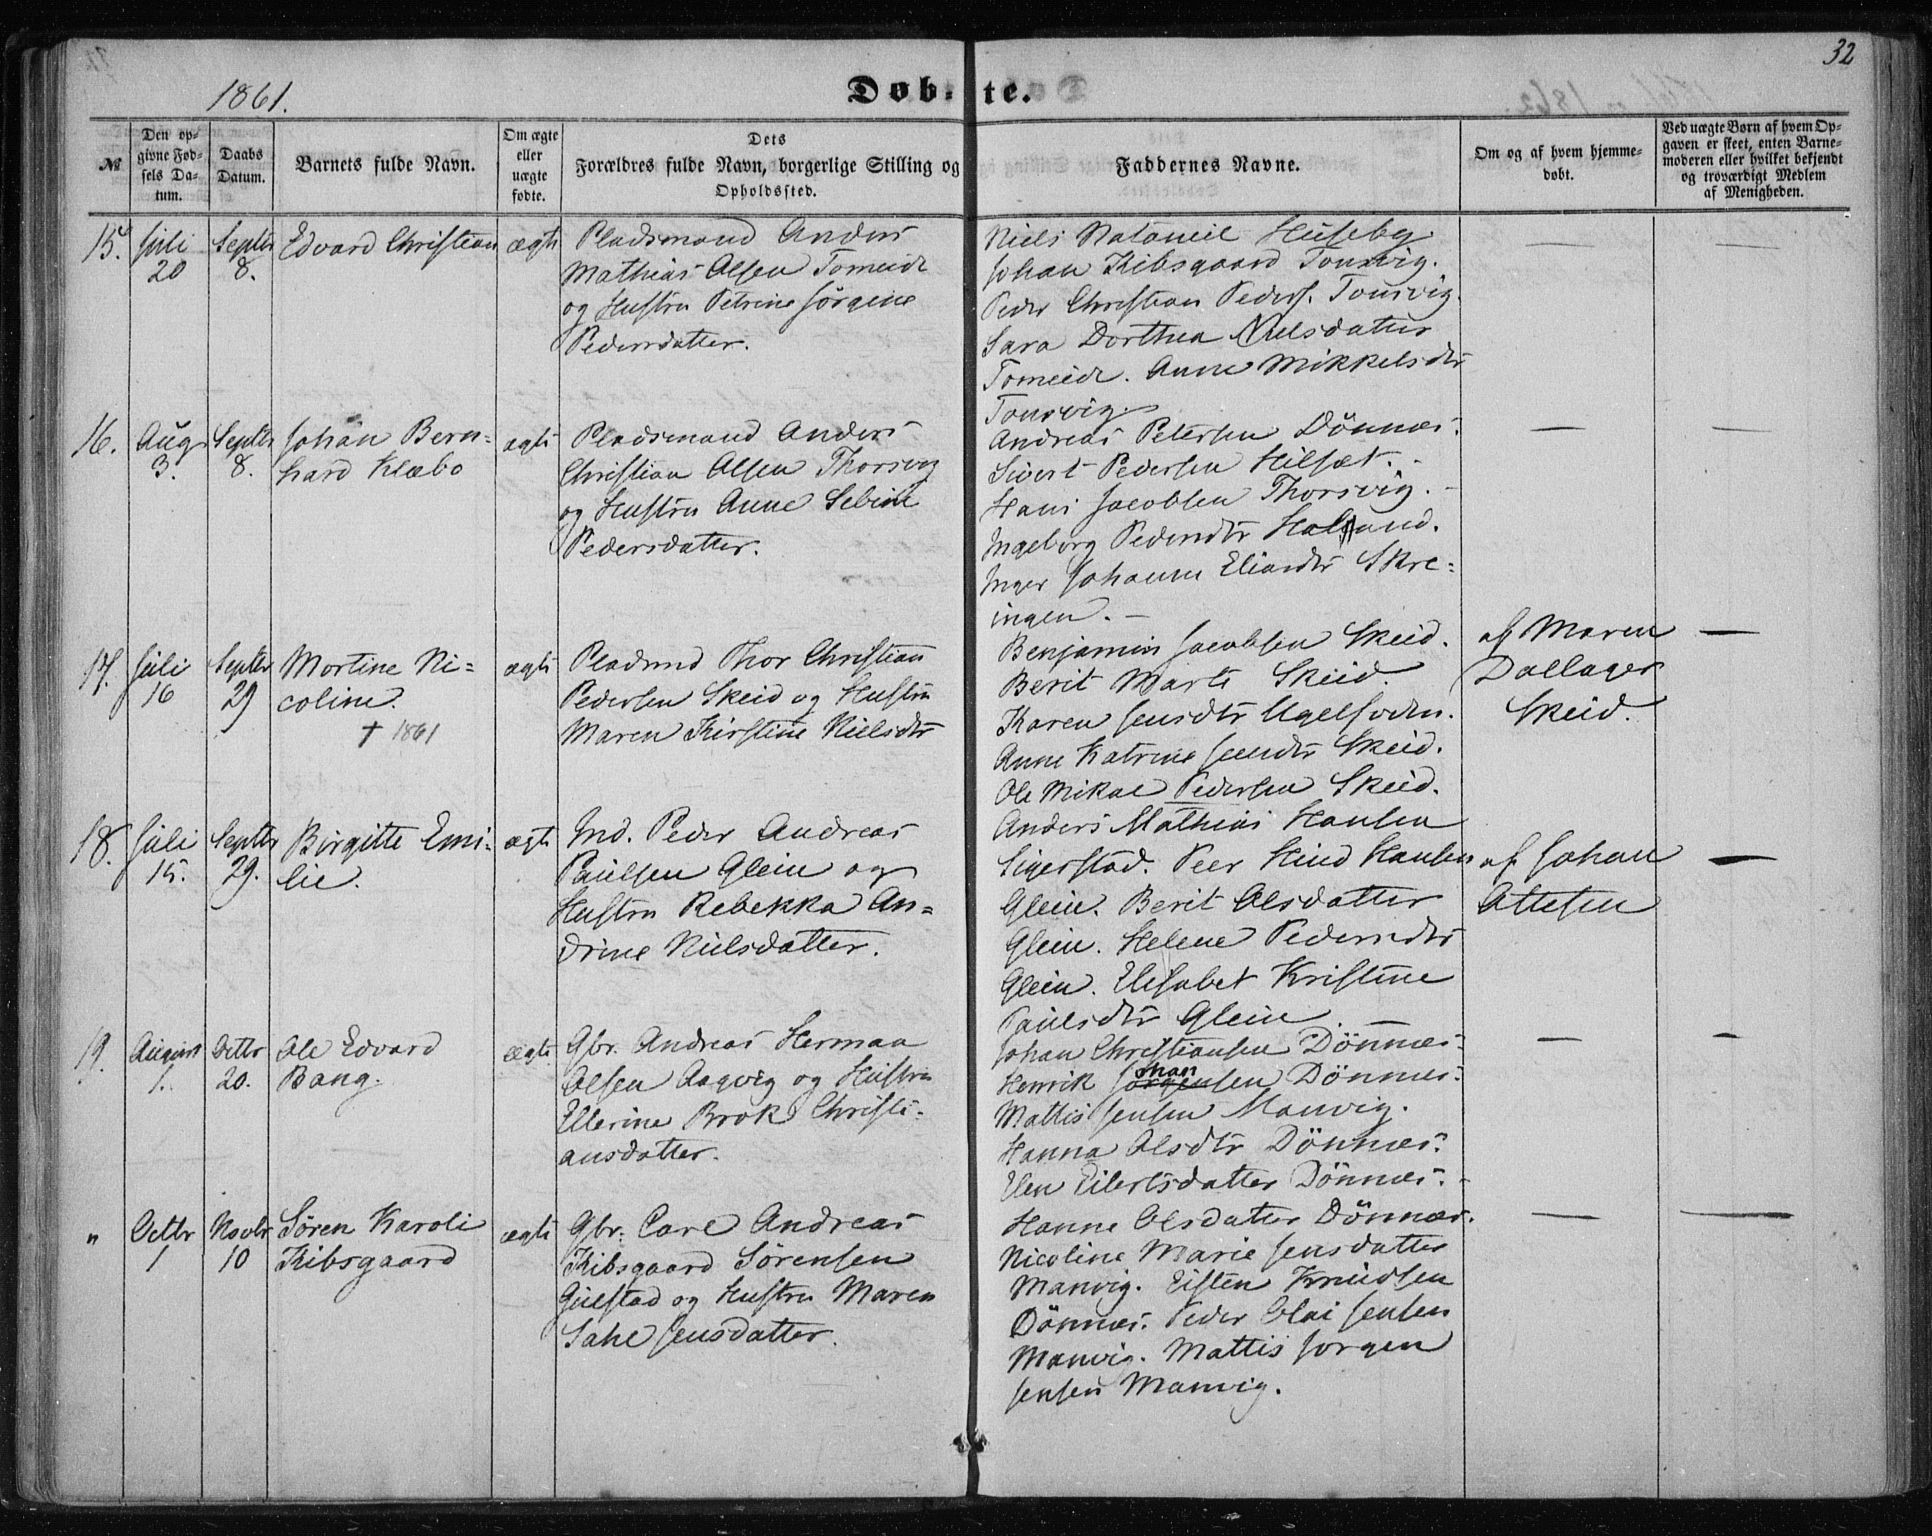 32
1861.
Døbte.
№
Den opgivne Fødsels Datum.
Daabs Datum.
Barnets fulde Navn.
Om ægte eller uægte fødte.
Dets Forældres fulde Navn, borgerlige Stilling og Opholdssted.
Faddernes Navne.
Om og af hvem hjemmedøbt.
Ved uægte Børn af hvem Opgaven er skeet, enten Barnemoderen eller hvilket bekjendt og troværdigt Medlem af Menigheden.
15. Juli 20
Septbr 8.
Edvard Christian
ægte
Pladsmand Anders
Mathias Olsen Tomeide
og Hustru Petrine Jørgine
Pedersdatter.
Niels Nataneil Huseby.
Johan Kibsgaard Tonsvig.
Peder Christian Peders. Tonsvig.
Sara Dorthea Nielsdatter
Tomeide. Anne Mikkelsdtr
Tonsvig.
—
—
16. Aug. 3.
Septbr 8.
Johan Bern-
hard Klæbo
ægte
Pladsmand Anders
Christian Olsen Thorsvig
og Hustru Anne Sebine
Pedersdatter.
Andreas Petersen Dönnes.
Sivert Pedersen Hilsæt. -
Hans Jacobsen Thorsvig. -
Ingeborg Pedersdtr
Inger Johanne Eliasdtr Skre-
ingen. -
—
—
17. Juli 16
Septbr 29
Mortine Ni-
coline.
† 1861
ægte
Pladsmd Thor Christian
Pedersen Skeid og Hustru
Maren Kirstine Nielsdtr
Benjamin Jacobsen Skeid.
Berit Marts Skeid.
Karen Jensdtr
Anne Katrine Jensdtr Skeid.
Ole Mikal Pedersen Skeid.
af Maren
Dallager
Skeid.
—
18. Juli 15.
Septbr 29.
Birgitte Emi-
lie.
ægte
Ind. Peder Andreas
Paulsen Glein og
Hustru Rebekka An-
drine Nielsdatter.
Anders Mathias Hansen
Sigerstad. Peer Hind Hansen
Glein. Berit Olsdatter
Glein. Helene Pedersdtr
Glein. Elisabet Kristine
Paulsdtr Glein. —
af Johan
Ottesen
—
19. August 1.
Octbr 20.
Ole Edvard
Bang.
ægte
Gbr. Andreas Herman
Olsen Aagvig og Hustru
Ellerine Brok Christi-
ansdatter.
Johan Christiansen Dönnes.
Henrik Johansen Dönnes.
Mattis Jensen Manvig.
Hanna Olsdtr Dönnes.
Elen Eilertsdatter Dönnes. -
—
-
" Octbr 1
Novbr 10
Sören Karoli
Kibsgaard
ægte
Gbr. Carl Andreas
Kibsgaard Sörensen
Gulstad og Hustru Maren
Jensdatter.
Hanne Olsdatter Dönnes.
Nicoline Marie Jensdatter
Manvig. Eisten Knudsen
Dönnes. Peder Olai Jensen
Manvig. Mattis Jorgen
Jensen Manvig.
—
—